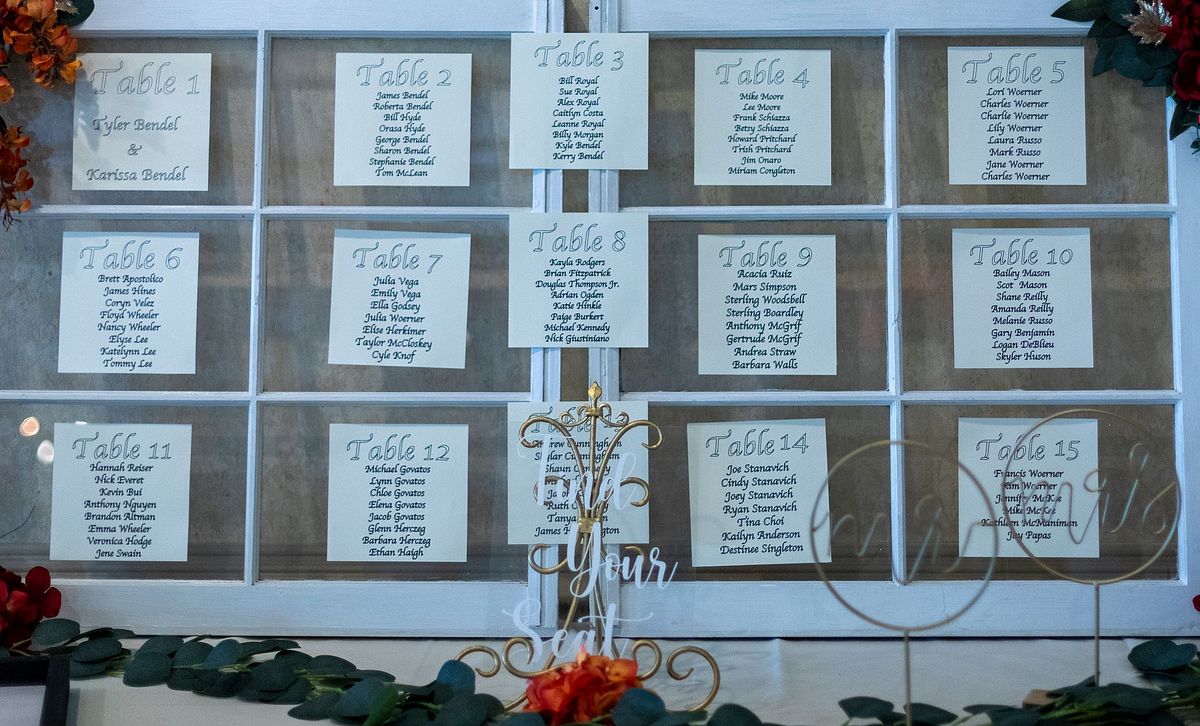 Table 1
Tyler Bendel
&
Karissa Bendel
Table 2
James Bendel
Roberta Bendel
Bill Hyde
Orasa Hyde
George Bendel
Sharon Bendel
Stephanie Bendel
Tom McLean
Table 3
Bill Royal
Sue Royal
Alex Royal
Caitlyn Costa
Leanne Royal
Billy Morgan
Kyle Bendel
Kerry Bendel
Table 4
Mike Moore
Lee Moore
Frank Schiazza
Betsy Schiazza
Howard Pritchard
Trish Pritchard
Jim Onaro
Miriam Congleton
Table 5
Lori Woerner
Charles Woerner
Charlie Woerner
Lily Woerner
Laura Russo
Mark Russo
Jane Woerner
Charles Woerner
Table 6
Brett Apostolico
James Hines
Coryn Velez
Floyd Wheeler
Nancy Wheeler
Elyse Lee
Katelynn Lee
Tommy Lee
Table 7
Julia Vega
Emily Vega
Ella Godsey
Julia Woerner
Elise Herkimer
Taylor McCloskey
Cyle Knof
Table 8
Kayla Rodgers
Brian Fitzpatrick
Douglas Thompson Jr.
Adrian Ogden
Katie Hinkle
Paige Burkert
Michael Kennedy
Nick Giustiniano
Table 9
Acacia Ruiz
Mars Simpson
Sterling Woodsbell
Sterling Boardley
Anthony McGrif
Gertrude McGrif
Andrea Straw
Barbara Walls
Table 10
Bailey Mason
Scot Mason
Shane Reilly
Amanda Reilly
Melanie Russo
Gary Benjamin
Logan DeBlieu
Skyler Huson
Table 11
Hannah Reiser
Nick Everet
Kevin Bui
Anthony Nguyen
Brandon Altman
Emma Wheeler
Veronica Hodge
Jene Swain
Table 12
Michael Govatos
Lynn Govatos
Chloe Govatos
Elena Govatos
Jacob Govatos
Glenn Herczeg
Barbara Herczeg
Ethan Haigh
Shaun
Ruth
Tanya
James
Table 14
Joe Stanavich
Cindy Stanavich
Joey Stanavich
Ryan Stanavich
Tina Choi
Kailyn Anderson
Destinee Singleton
Table 15
Francis Woerner
Kim Woerner
Jennifer McKee
Mike McKee
Kathleen McManiman
Jay Papas
Find
Your
Seat
mr
mrs